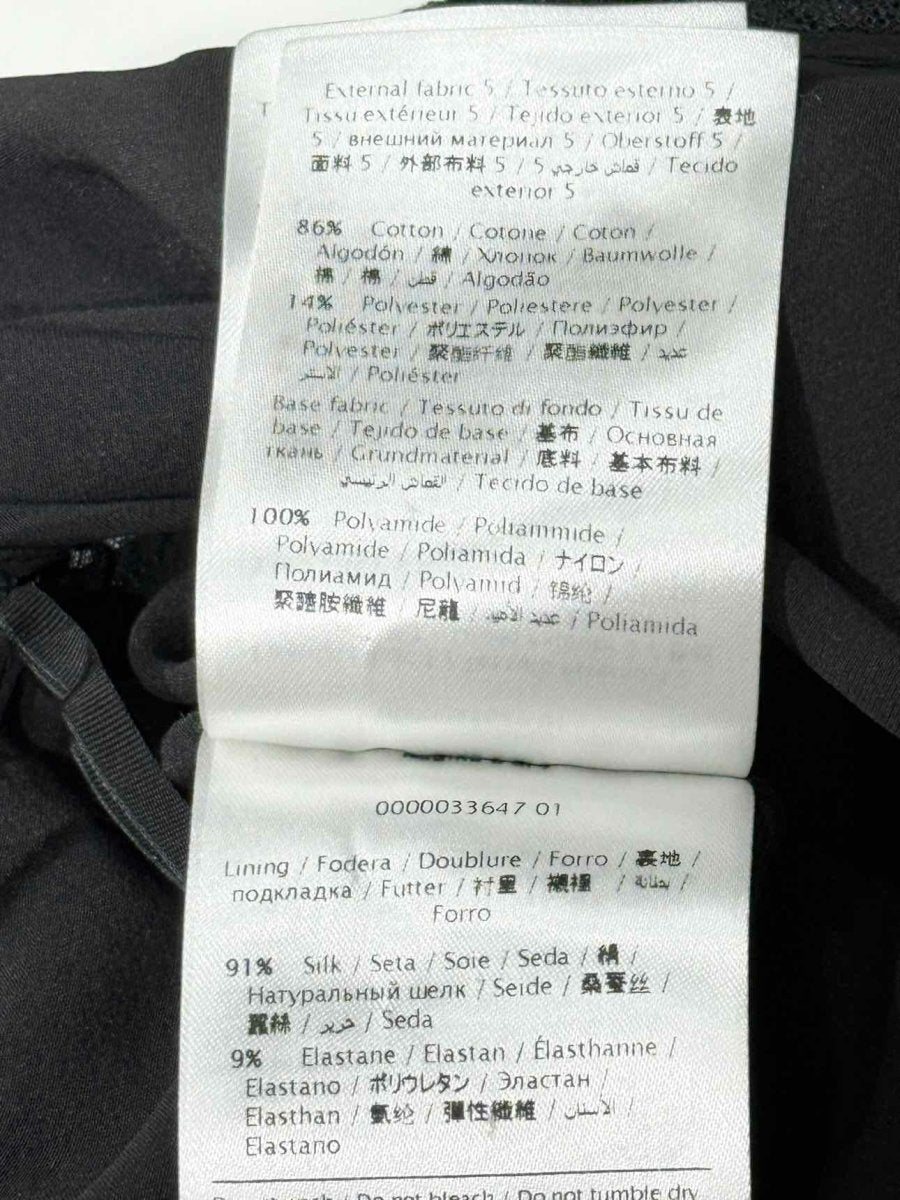 External fabric 5 / Tessuto esterno 5 /
Tissu extérieur 5 / Tejido exterior 5 / 表地
5 / внешний материал 5 / Oberstoff 5 /
面料 5 / 外部布料 5 / قماش خارجي 5 / Tecido
exterior 5
86% Cotton / Cotone / Coton /
Algodón / 綿 / Хлопок / Baumwolle /
棉 / 棉 / قطن / Algodão
14% Polyester / Poliestere / Polyester /
Poliéster / ポリエステル / Полиэфир /
Polyester / 聚酯纤维 / 聚酯纖維 / عديد
الاستر / Poliéster
Base fabric / Tessuto di fondo / Tissu de
base / Tejido de base / 基布 / Основная
ткань / Grundmaterial / 底料 / 基本布料 /
القماش الرئيسي / Tecido de base
100% Polyamide / Poliammide /
Polyamide / Poliamida / ナイロン /
Полиамид / Polyamid / 锦纶 /
聚醯胺纖維 / 尼龍 / عديد الاميد / Poliamida
0000033647 01
Lining / Fodera / Doublure / Forro / 裏地 /
подкладка / Futter / 衬里 / 襯裡 / بطانة /
Forro
91% Silk / Seta / Soie / Seda / 絹 /
Натуральный шелк / Seide / 桑蚕丝 /
蠶絲 / حرير / Seda
9% Elastane / Elastan / Élasthanne /
Elastano / ポリウレタン / Эластан /
Elasthan / 氨纶 / 彈性纖維 / الاستان /
Elastano
/ Do not bleach / Do not tumble dry